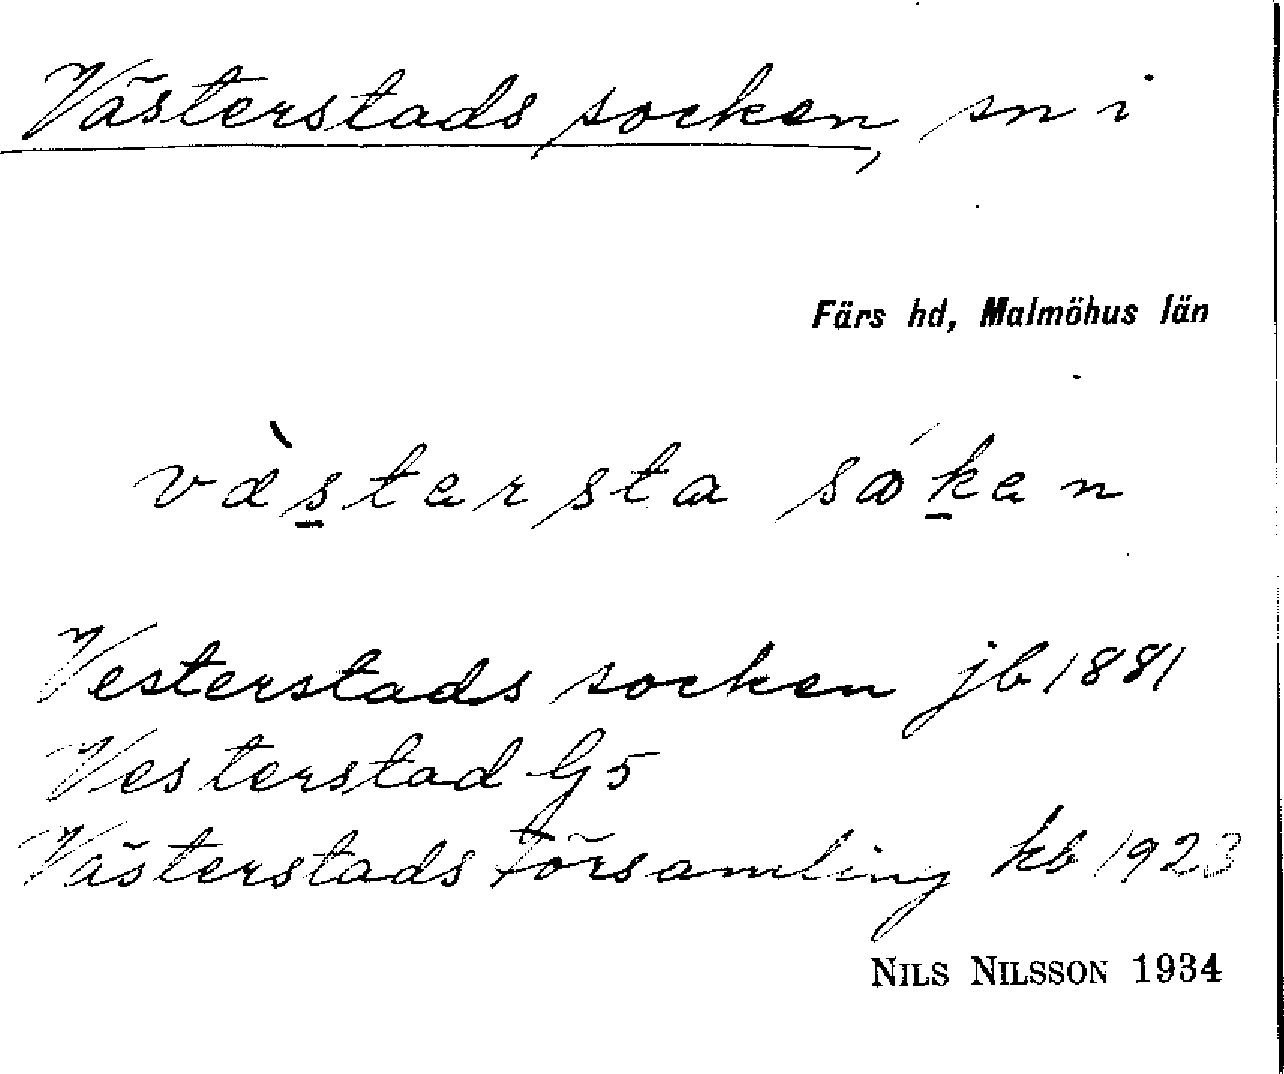 Västerstads socken, sn i
Färs hd, Malmöhus län
væ̀s̱tersta sǿḵen
Vesterstads socken jb 1881
Vesterstad G5
Västerstads församling kb 1923
NILS NILSSON 1934